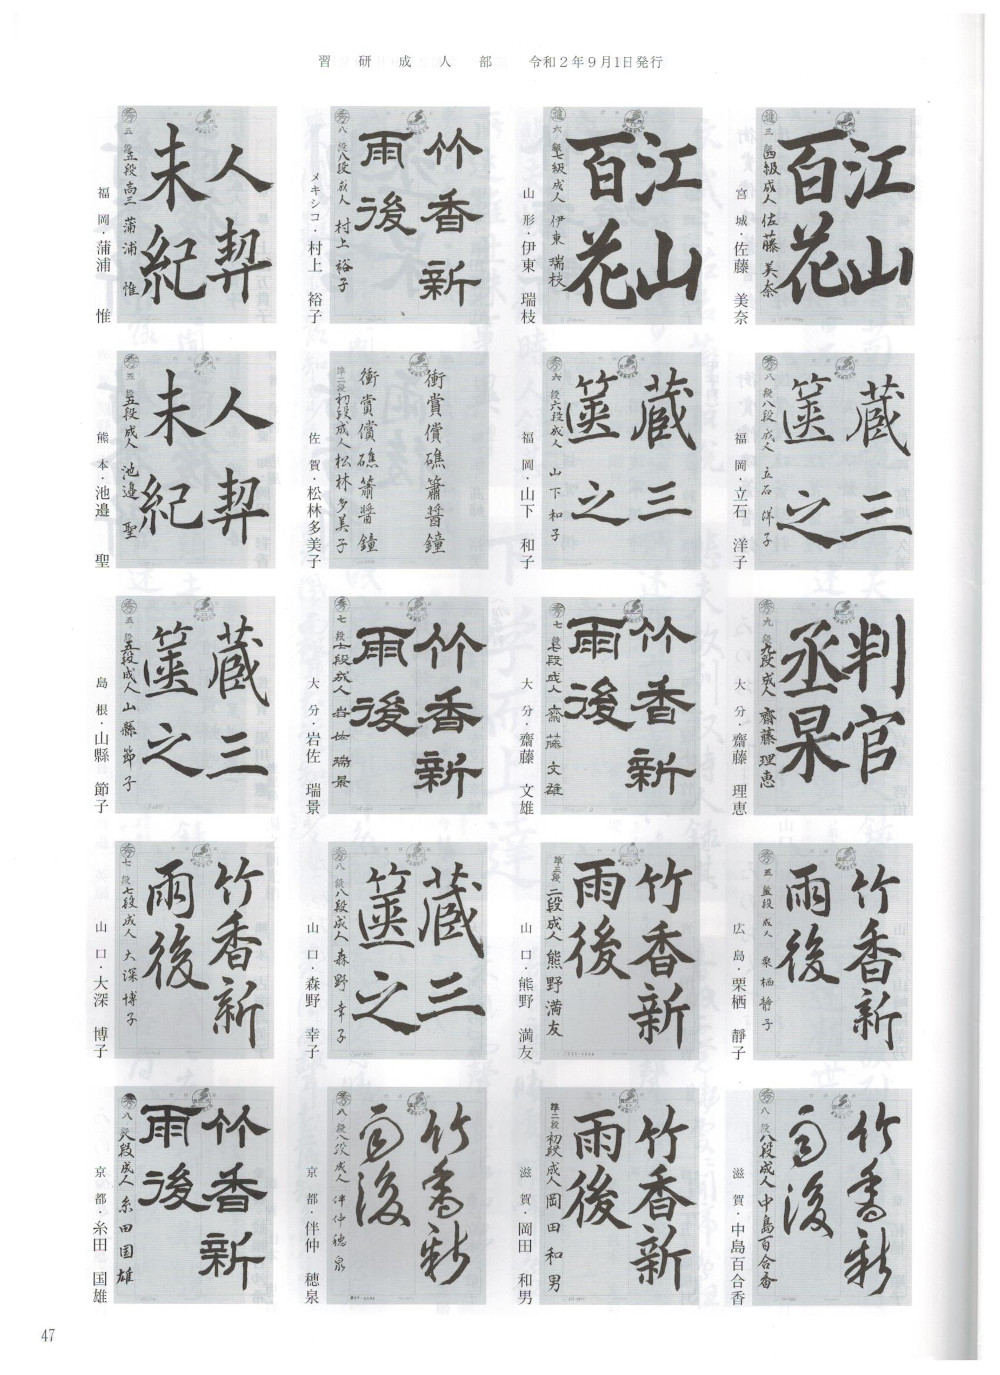 習研成人部 令和2年9月1日発行
江山
百花
四級成人 佐藤美奈
宮城・佐藤 美奈
江山
百花
七級成人 伊東瑞枝
山形・伊東 瑞枝
竹香新
雨後
八段成人 村上裕子
メキシコ・村上 裕子
人契
未紀
五段高三 蒲浦惟
福岡・蒲浦 惟
蔵三
篋之
八段成人 立石洋子
福岡・立石 洋子
蔵三
篋之
六段成人 山下和子
福岡・山下 和子
衝賞償礁簫醤鐘
衝賞償礁簫醤鐘
初段成人 松林多美子
佐賀・松林多美子
人契
未紀
五段成人 池邉聖
熊本・池邉 聖
判官
丞杲
九段成人 齋藤理恵
大分・齋藤 理恵
竹香新
雨後
七段成人 齋藤文雄
大分・齋藤 文雄
竹香新
雨後
七段成人 岩佐瑞景
大分・岩佐 瑞景
蔵三
篋之
五段成人 山縣節子
島根・山縣 節子
竹香新
雨後
成人 栗栖靜子
広島・栗栖 靜子
竹香新
雨後
二段成人 熊野満友
山口・熊野 満友
蔵三
篋之
八段成人 森野幸子
山口・森野 幸子
竹香新
雨後
七段成人 大深博子
山口・大深 博子
竹香新
雨後
八段成人 中島百合香
滋賀・中島百合香
竹香新
雨後
初段成人 岡田和男
滋賀・岡田 和男
竹香新
雨後
八段成人 伴仲穂泉
京都・伴仲 穂泉
竹香新
雨後
八段成人 糸田国雄
京都・糸田 国雄
47